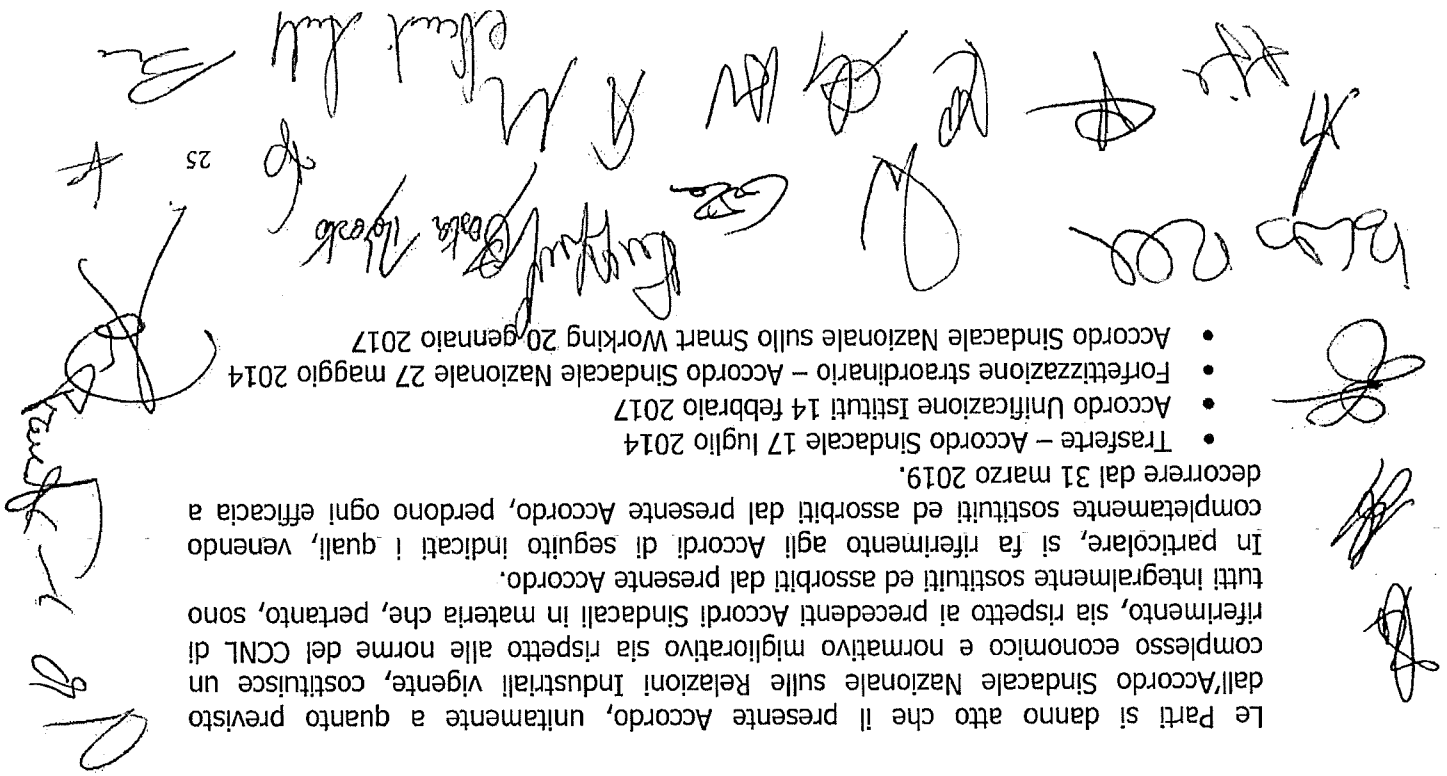 Le Parti si danno atto che il presente Accordo, unitamente a quanto previsto
dall'Accordo Sindacale Nazionale sulle Relazioni Industriali vigente, costituisce un
complesso economico e normativo migliorativo sia rispetto alle norme del CCNL di
riferimento, sia rispetto ai precedenti Accordi Sindacali in materia che, pertanto, sono
tutti integralmente sostituiti ed assorbiti dal presente Accordo.
In particolare, si fa riferimento agli Accordi di seguito indicati i quali, venendo
completamente sostituiti ed assorbiti dal presente Accordo, perdono ogni efficacia a
decorrere dal 31 marzo 2019.
• Trasferte – Accordo Sindacale 17 luglio 2014
• Accordo Unificazione Istituti 14 febbraio 2017
• Forfettizzazione straordinario – Accordo Sindacale Nazionale 27 maggio 2014
• Accordo Sindacale Nazionale sullo Smart Working 20 gennaio 2017
25